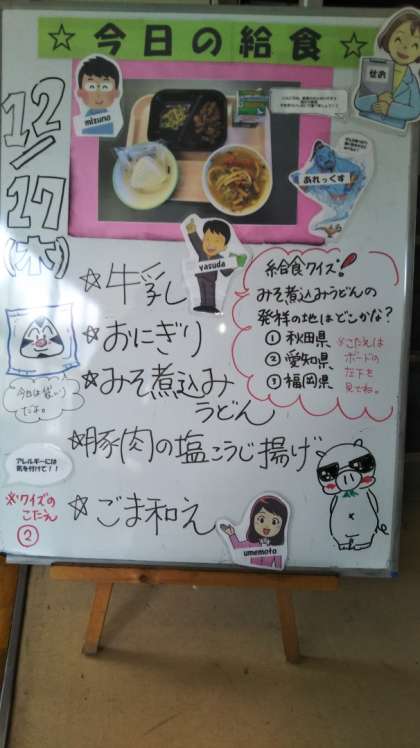 ☆今日の給食☆
せお
mizuno
12/17(木)
あれっくす
yasuda
☆牛乳
☆おにぎり
☆みそ煮込み
うどん
☆豚肉の塩こうじ揚げ
☆ごま和え
給食クイズ!
みそ煮込みうどんの
発祥の地はどこかな?
① 秋田県
② 愛知県
③ 福岡県
※こたえは
ボードの
左下を
見てね。
だよ。
アレルギーには
気を付けて!!
※クイズの
こたえ
②
umemoto